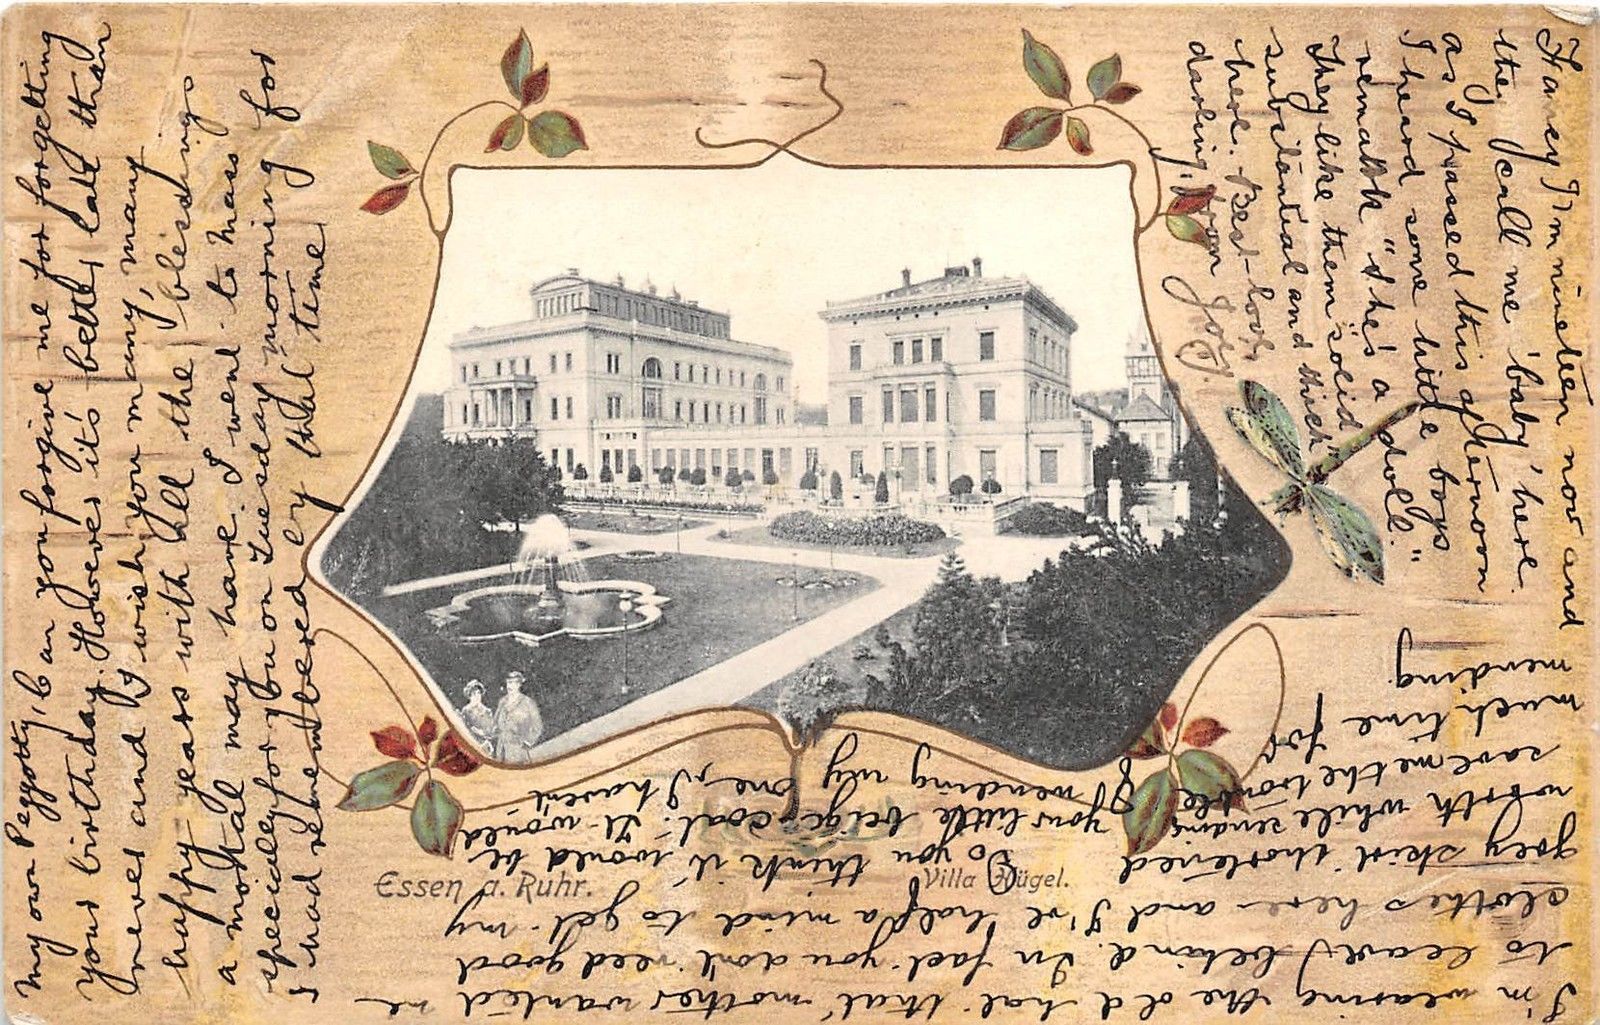 My own Peggotty, Can you forgive me for forgetting
your birthday. However it's better late than
never and I wish you many, many
happy years with all the blessings
a mortal may have. I went to Mass
specially for you on Tuesday morning for
I had remembered by that time
I'm wearing the old hat that mother wanted me
to leave behind. In fact you don't need good
clothes here and I've half a mind to get my
grey skirt shortened
Do you think it would be
worth while sending
your little beige coat. It would
save me the trouble of
mending my one, I haven't
much time for
mending.
Fancy I'm nineteen now and
they call me 'baby' here.
as I passed this afternoon
I heard some little boys
remark "she's a doll."
They like them "solid"
substantial and thick"
here. Best love,
darling, from
Joey.
Essen a. Ruhr.
Villa Hügel.